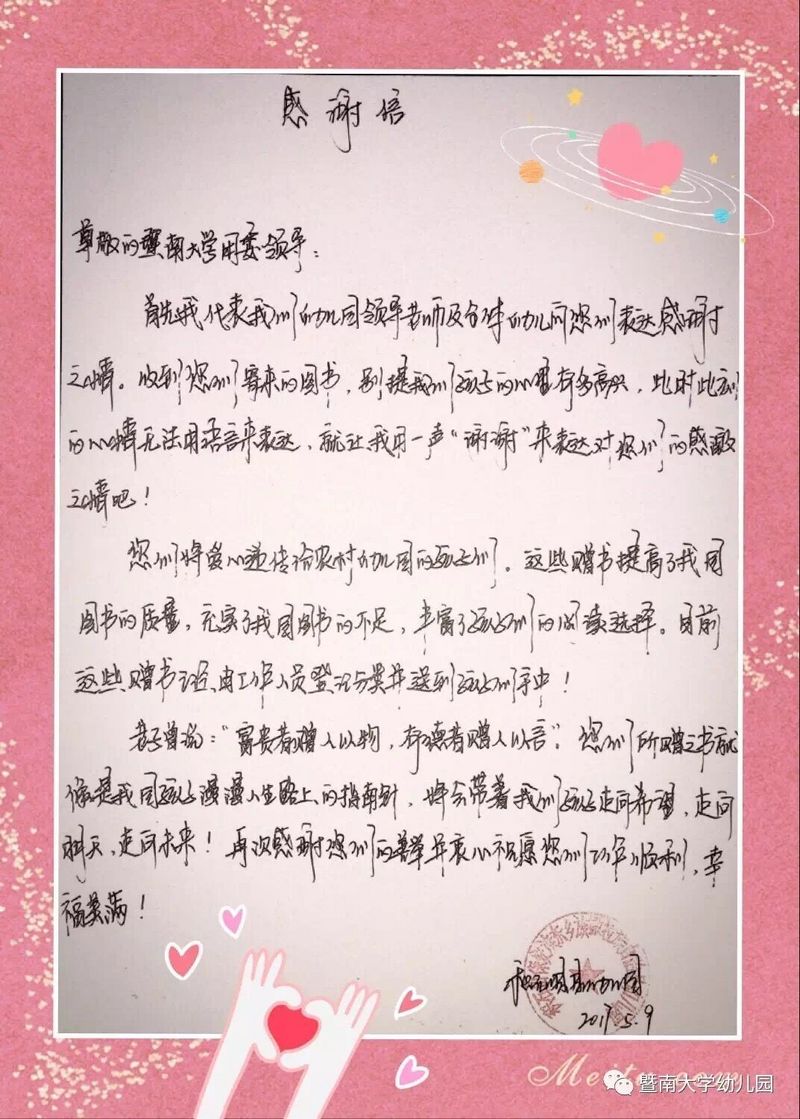 感谢信
尊敬的暨南大学团委领导：
首先我代表我们幼儿园领导老师及全体幼儿向您们表达感谢
之情。收到您们寄来的图书，别提我们孩子的心里有多高兴，此时此刻
的心情无法用语言来表达，就让我用一声“谢谢”来表达对您们的感激
之情吧！
您们将爱心递传给农村幼儿园的孩子们。这些赠书提高了我园
图书的质量，充实了我园图书的不足，丰富了孩子们的阅读选择。目前
这些赠书已经由工作人员登记分类并送到孩子们手中！
老子曾说：“富贵者赠人以物，有德者赠人以言”。您们所赠之书就
像是我园孩子漫漫人生路上的指南针，将会带着我们孩子走向希望，走向
明天，走向未来！再次感谢您们的善举并衷心祝愿您们工作顺利，幸
福美满！
幼儿园
2017 5.9
暨南大学幼儿园